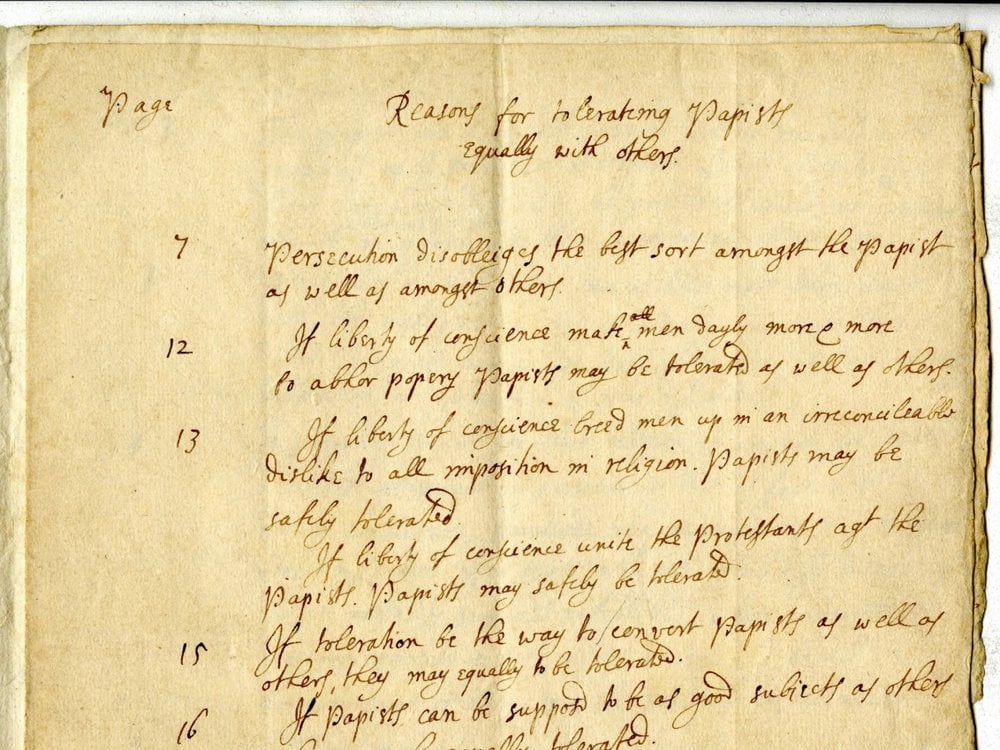 Page Reasons for tolerateing Papists
equally with others.
7 Persecution disobleiges the best sort amongst the Papist
as well as amongst others.
12 If liberty of conscience make all men dayly more & more
to abhor popery Papists may be tolerated as well as others.
13 If liberty of conscience breed men up in an irreconcileable
dislike to all imposition in religion. Papists may be
safely tolerated.
If liberty of conscience unite the Protestants agt the
Papists. Papists may safely be tolerated.
15 If toleration be the way to convert Papists as well as
others, they may equally to be tolerated.
16 If Papists can be supposd to be as good subjects as others
equally tolerated.